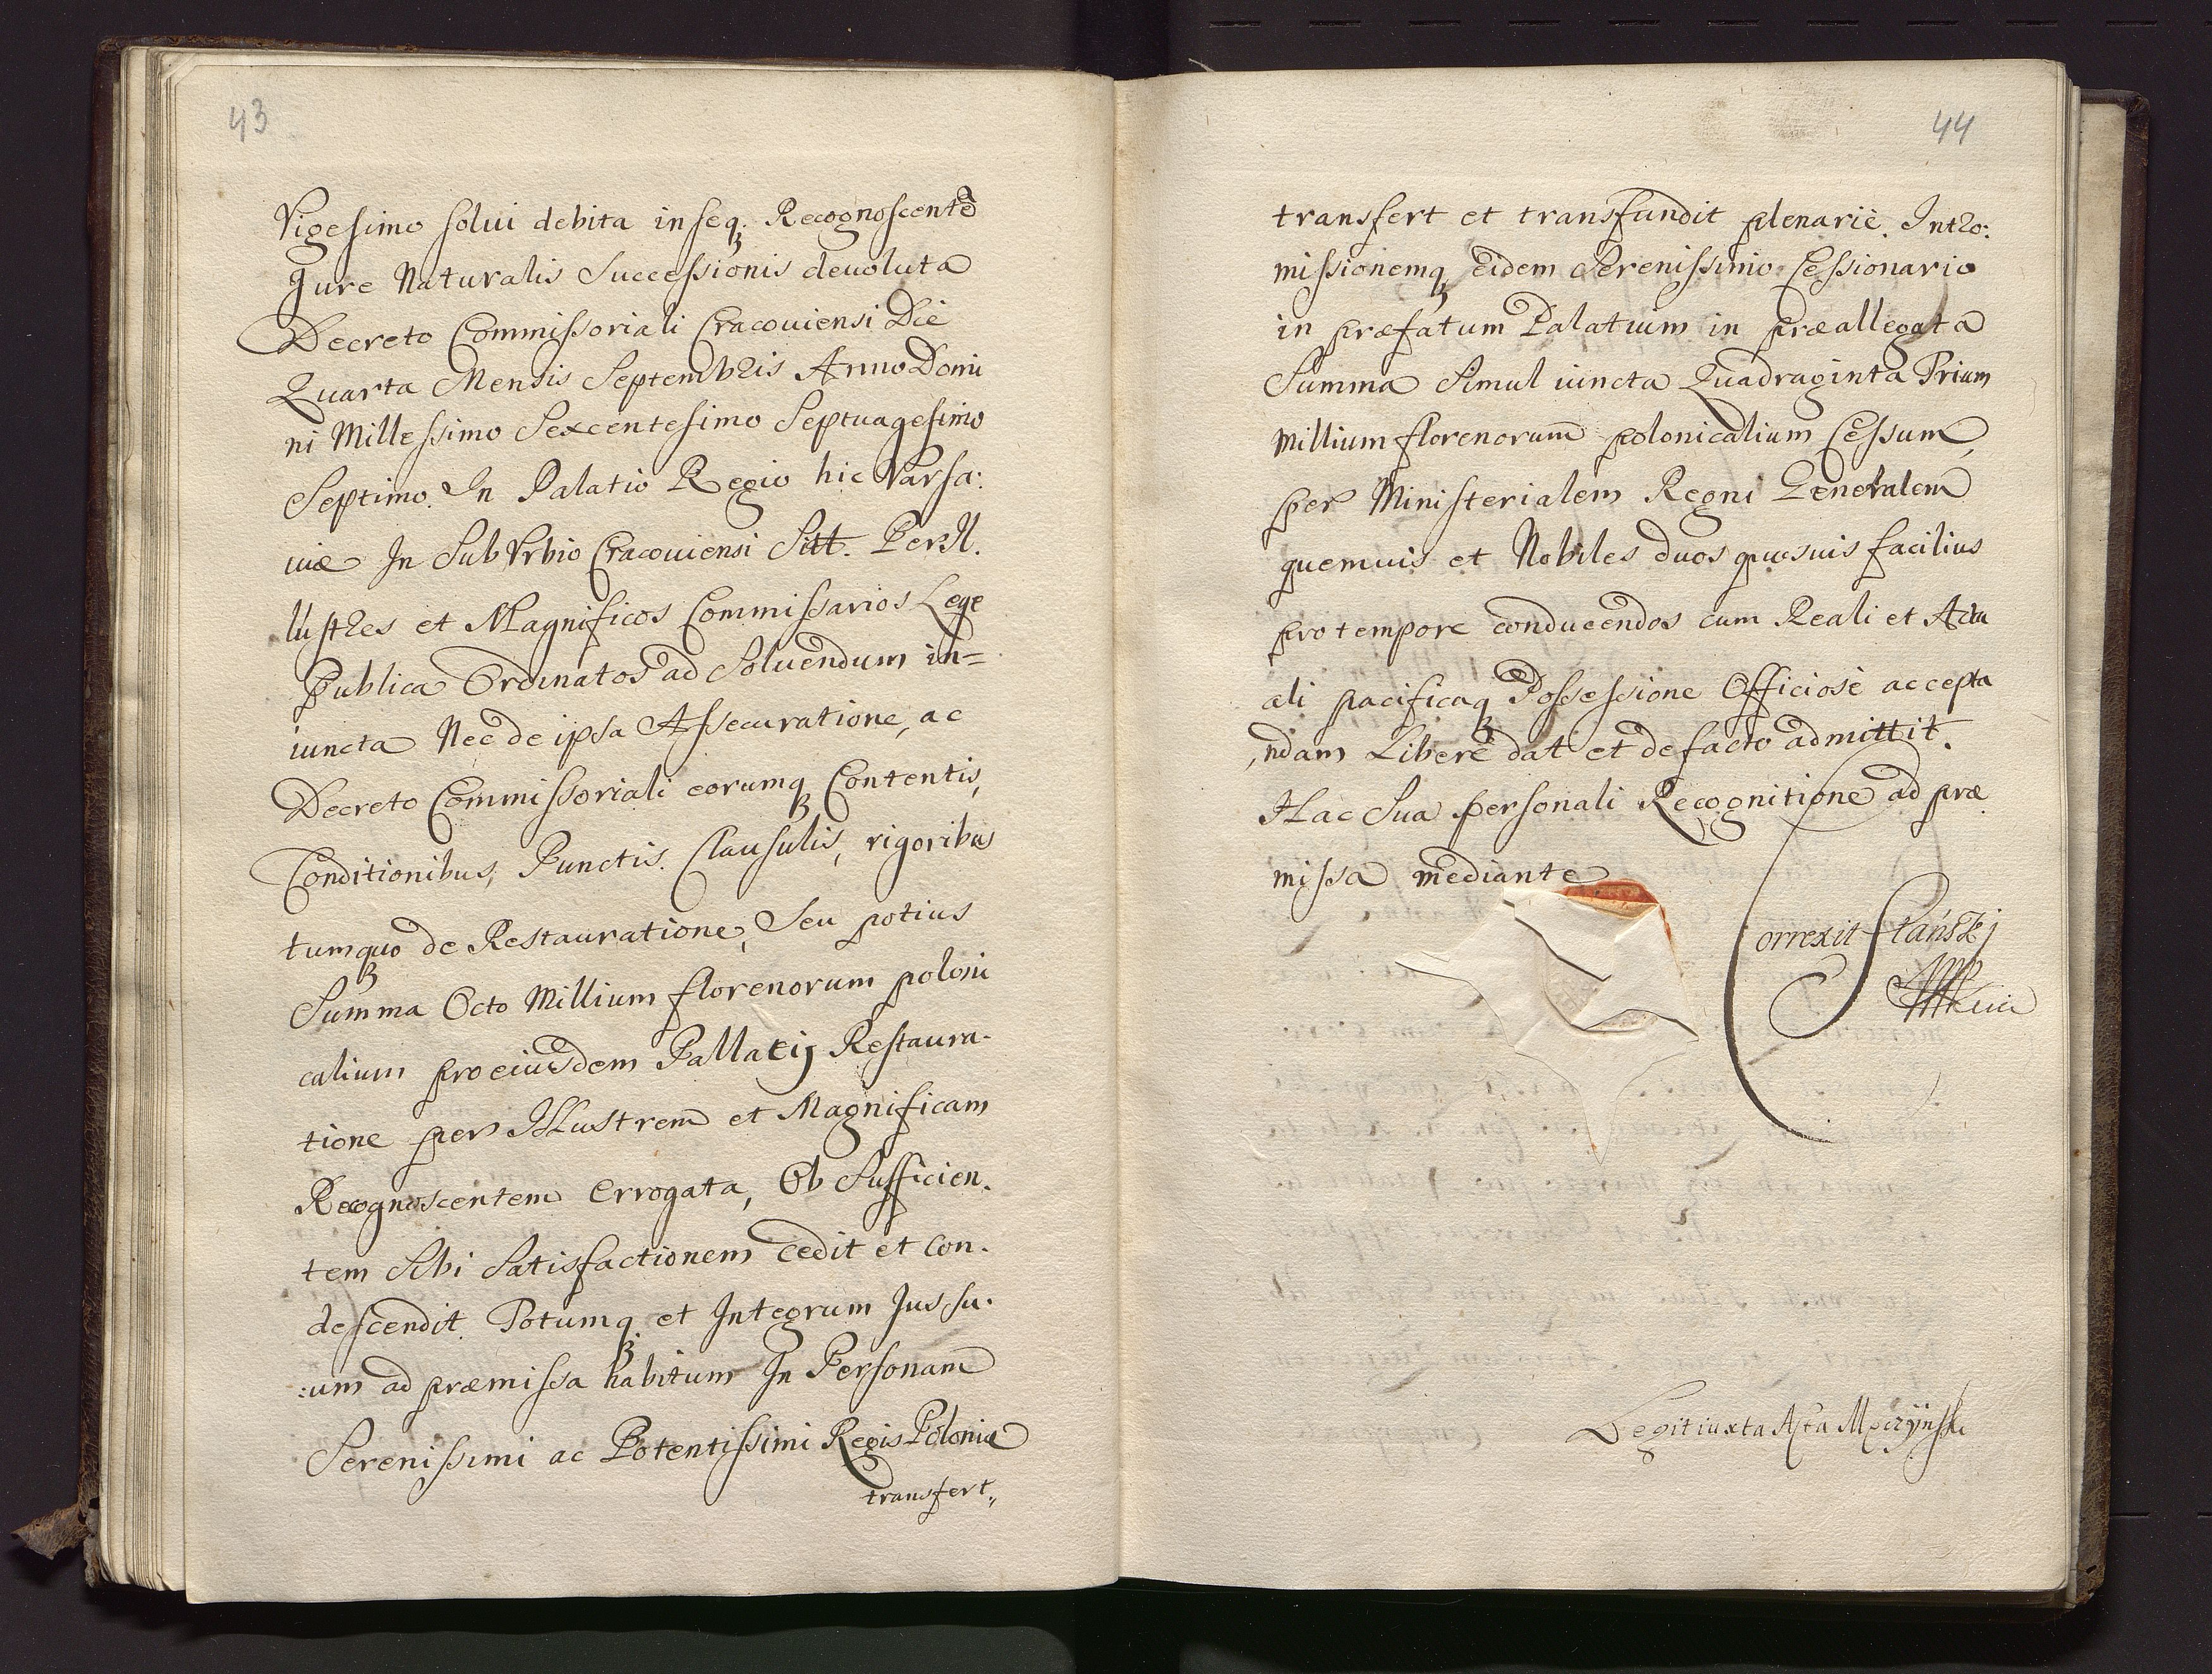 43
Vigesimo solui debita in seq. Recognoscentē
Jure Naturalis Successionis deuoluta
Decreto Commissoriali Cracouiensi Die
Quarta Mensis Septembris Anno Domi
ni Millessimo Sexcentesimo Septuagesimo
Septimo. In Palatio Regio hic Varsa:
uiæ In SubVrbio Cracouiensi Sitt. Per Il.
lustres et Magnificos Commissarios Lege
Publica Ordinatos ad Soluendum in=
iuncta Nec de ipsa Assecuratione, ac
Decreto Commissoriali eorumq3 Contentis,
Conditionibus, Punctis. Clausulis, rigoribus
tumquo de Restauratione, Seu potius
Summa Octo Millium florenorum poloni
calium pro eiusdem Pallatij Restaura-
tione per Illustrem et Magnificam
Recognoscentem Errogata, Ob Sufficien.
tem Sibi Satisfactionem Cedit et Con.
descendit. Totumq3 et Integrum Jus su.
:um ad præmissa habitum In Personam
Serenissimi ac Potentissimi Regis Poloniæ
transfert,,
44
transfert et transfundit plenariè. Intro:
missionemq3 eidem Serenissimo Cessionario
in præfatum Palatium in præallegata
Summa Simul iuncta Quadraginta Trium
Millium florenorum polonicalium Cessum,
per Ministerialem Regni Generalem
quemuis et Nobiles duos quosuis facilius
pro tempore conducendos cum Reali et Actu
ali pacificaq3 Possessione Officiosè accepta
,ndam Liberè dat et de facto admittit.
Hac Sua personali Recognitione ad præ
missa mediante
Correxit Stański
Legit iuxta Acta Mączyński